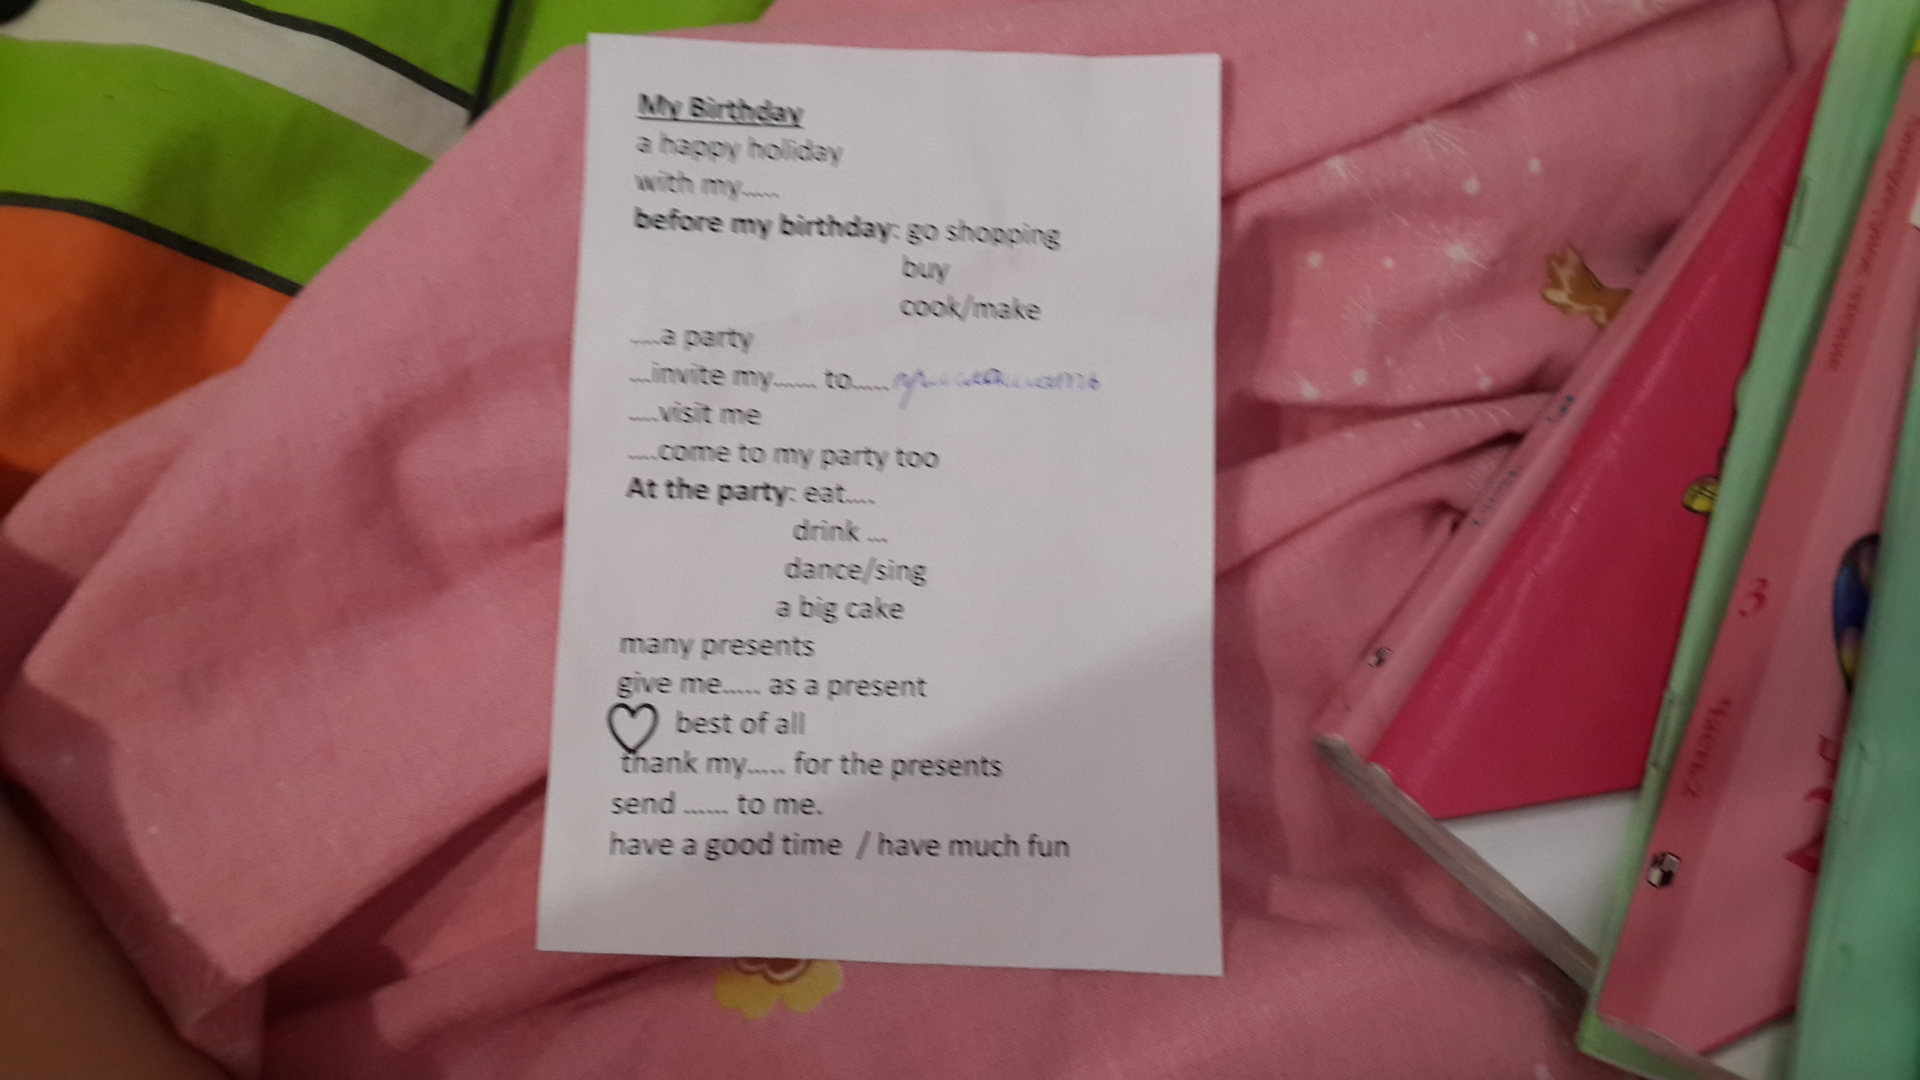 My Birthday
a happy holiday
with my.....
before my birthday: go shopping
buy
cook/make
.....a party
....invite my...... to.....
.....visit me
.....come to my party too
At the party: eat....
drink ...
dance/sing
a big cake
many presents
give me..... as a present
best of all
thank my..... for the presents
send ...... to me.
have a good time / have much fun
3